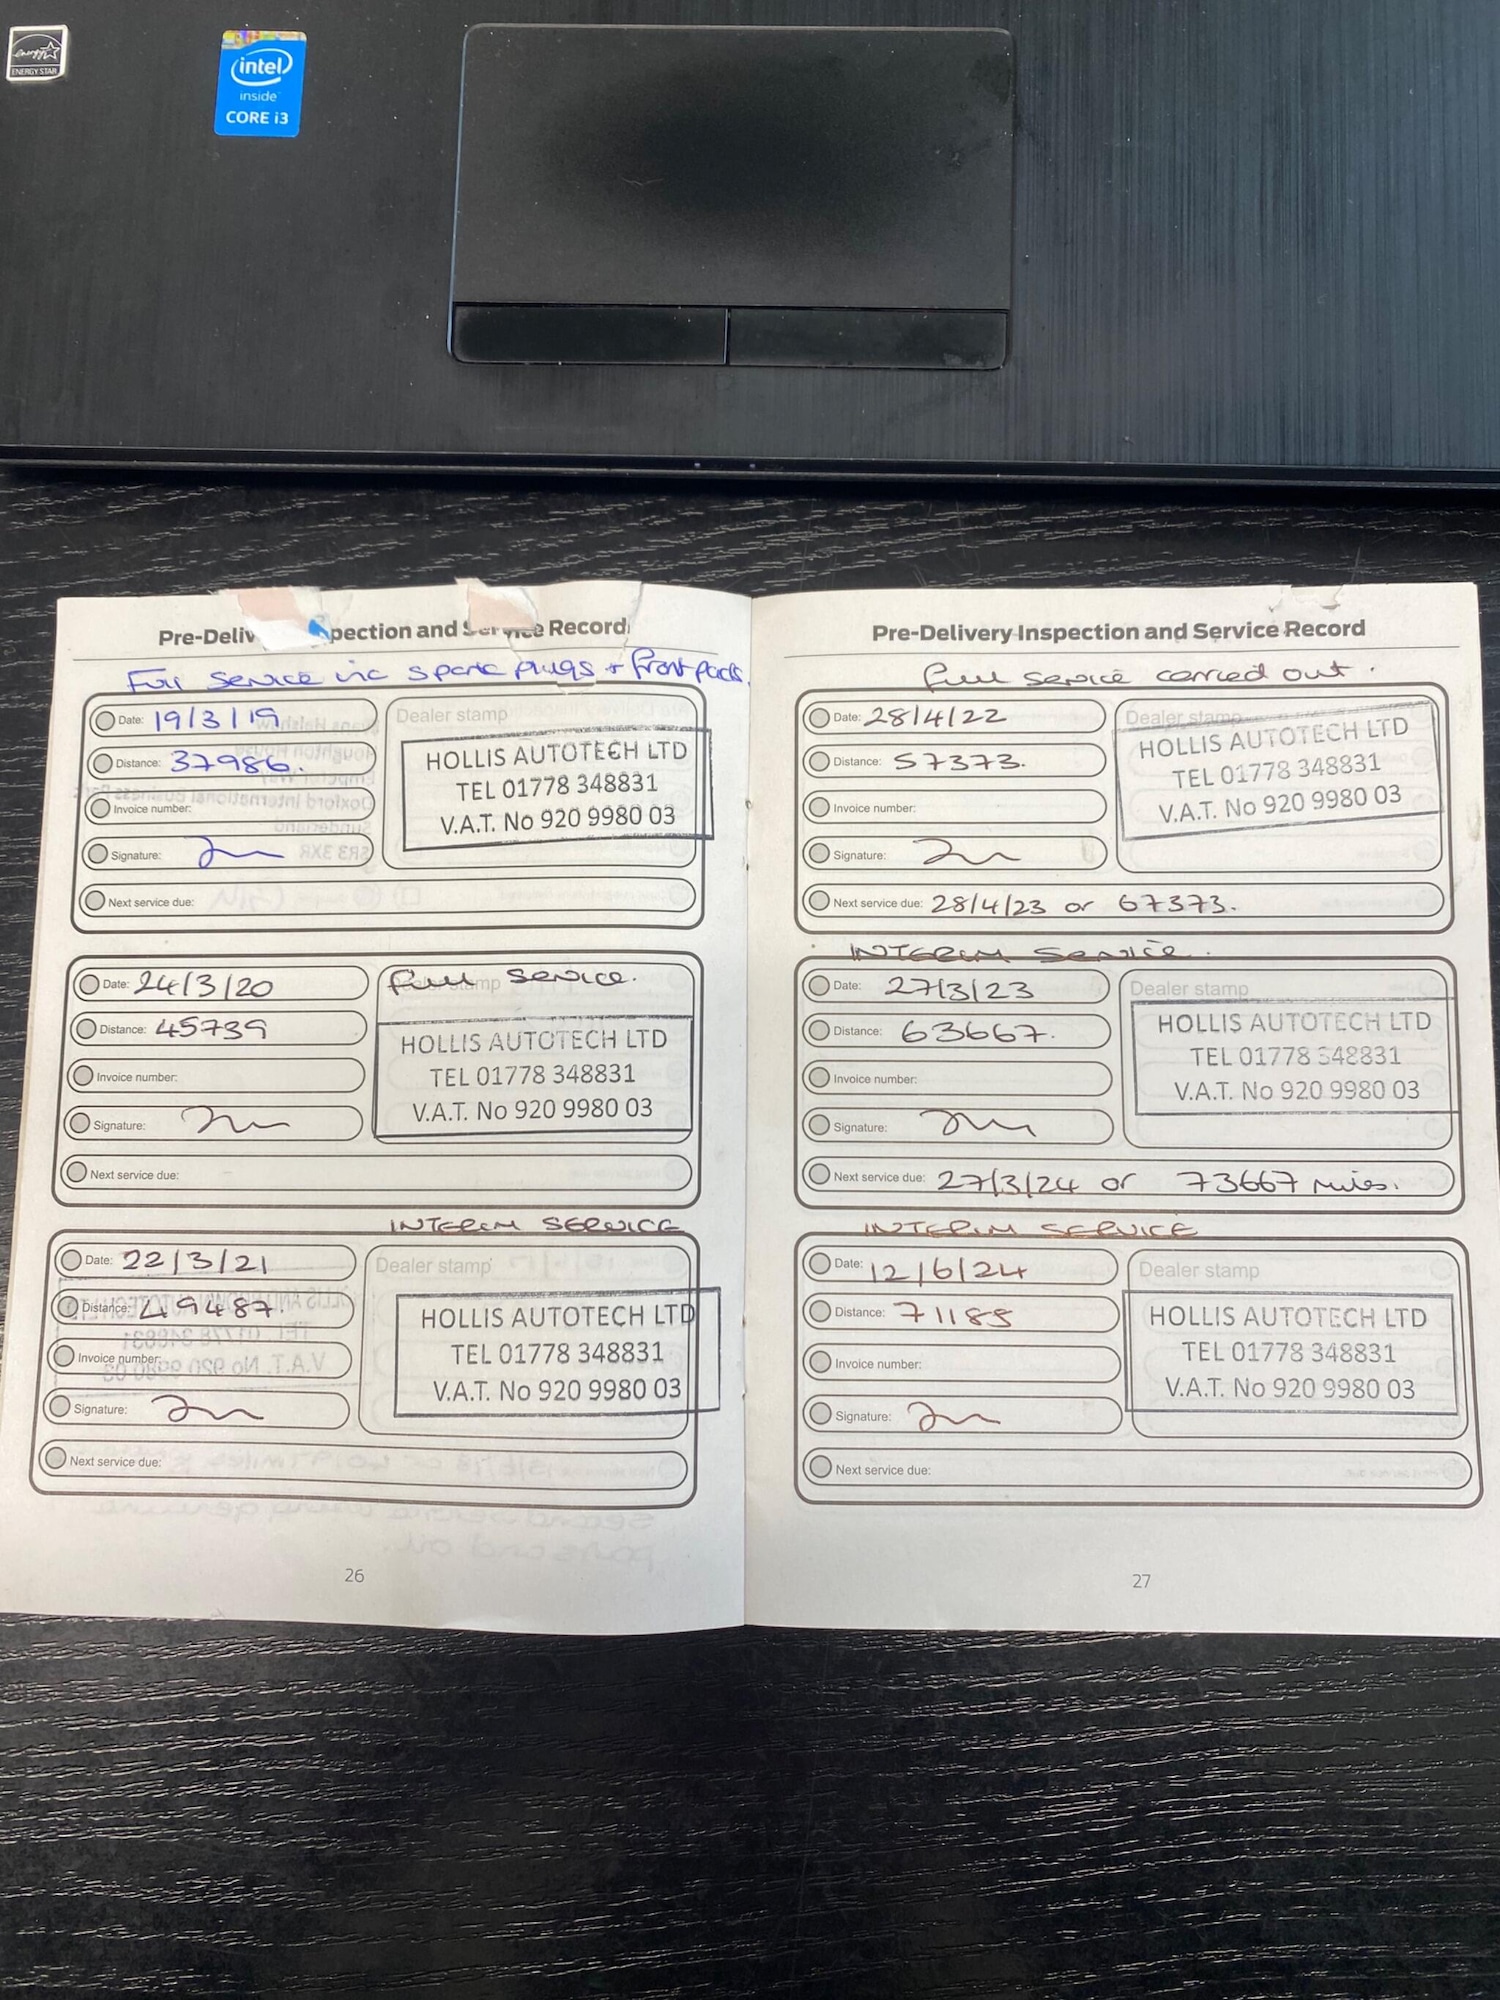 energy
ENERGY STAR
intel
inside
CORE i3
Pre-Deliv pection and Service Record
Full Service inc spark plugs + front pads.
Date: 19/3/19
Distance: 37986.
Invoice number:
Signature:
Next service due:
Dealer stamp
HOLLIS AUTOTECH LTD
TEL 01778 348831
V.A.T. No 920 9980 03
Date: 24/3/20
Distance: 45739
Invoice number:
Signature:
Next service due:
Full Service.
HOLLIS AUTOTECH LTD
TEL 01778 348831
V.A.T. No 920 9980 03
INTERIM SERVICE
Date: 22/3/21
Distance: 49487.
Invoice number:
Signature:
Next service due:
Dealer stamp
HOLLIS AUTOTECH LTD
TEL 01778 348831
V.A.T. No 920 9980 03
26
Pre-Delivery Inspection and Service Record
Full service carried out.
Date: 28/4/22
Distance: 57373.
Invoice number:
Signature:
Next service due: 28/4/23 or 67373.
Dealer stamp
HOLLIS AUTOTECH LTD
TEL 01778 348831
V.A.T. No 920 9980 03
INTERIM Service.
Date: 27/3/23
Distance: 63667.
Invoice number:
Signature:
Next service due: 27/3/24 or 73667 miles.
Dealer stamp
HOLLIS AUTOTECH LTD
TEL 01778 348831
V.A.T. No 920 9980 03
INTERIM SERVICE
Date: 12/6/24
Distance:
Invoice number:
Signature:
Next service due:
Dealer stamp
HOLLIS AUTOTECH LTD
TEL 01778 348831
V.A.T. No 920 9980 03
27